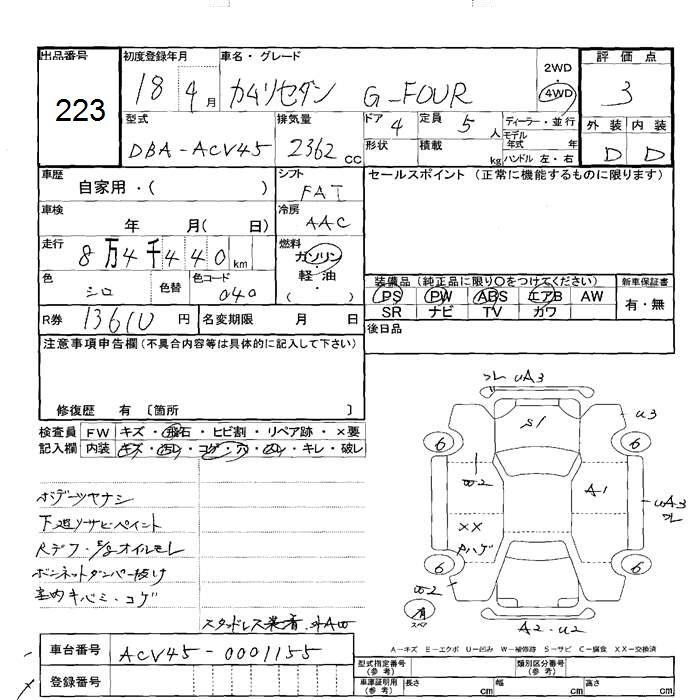 出品番号 初度登録年月 車名・グレード 2WD 評価点
223 18 4月 カムリセダン G-FOUR 4WD 3
型式 排気量 ドア 4 定員 5人 ディーラー・並行 外装 内装
DBA-ACV45 2362cc 形状 積載 kg モデル年式 年 D D
ハンドル 左・右
車歴 自家用・( ) シフト FAT セールスポイント(正常に機能するものに限ります)
車検 年 月( 日) 冷房 AAC
走行 8万4千440km 燃料 ガソリン・軽油・( )
色 シロ 色替 色コード 040
装備品(純正品に限り○をつけてください) 新車保証書
PS PW ABS エアB AW 有・無
SR ナビ TV カワ
R券 13610円 名変期限 月 日 後日品
注意事項申告欄(不具合内容等は具体的に記入して下さい)
修復歴 有〔箇所 〕
検査員 FW キズ・飛石・ヒビ割・リペア跡・×要
記入欄 内装 キズ・汚れ・コゲ・穴・・キレ・破レ
下廻リサビペイント
Rデフ・E/gオイルモレ
ボンネットダンパー抜け
室内キバミ・コゲ
スタッドレス装着
車台番号 ACV45-0001155
登録番号
フレ uA3
S1
u3
6 6
A1
uA3
フレ
XX
Pハゲ
6 6
A2・u2
スペア
A-キズ E-エクボ U-凹み W-補修跡 S-サビ C-腐食 XX-交換済
型式指定番号(参考) 類別区分番号(参考)
車庫証明用(参考) 長さ cm 幅 cm 高さ cm